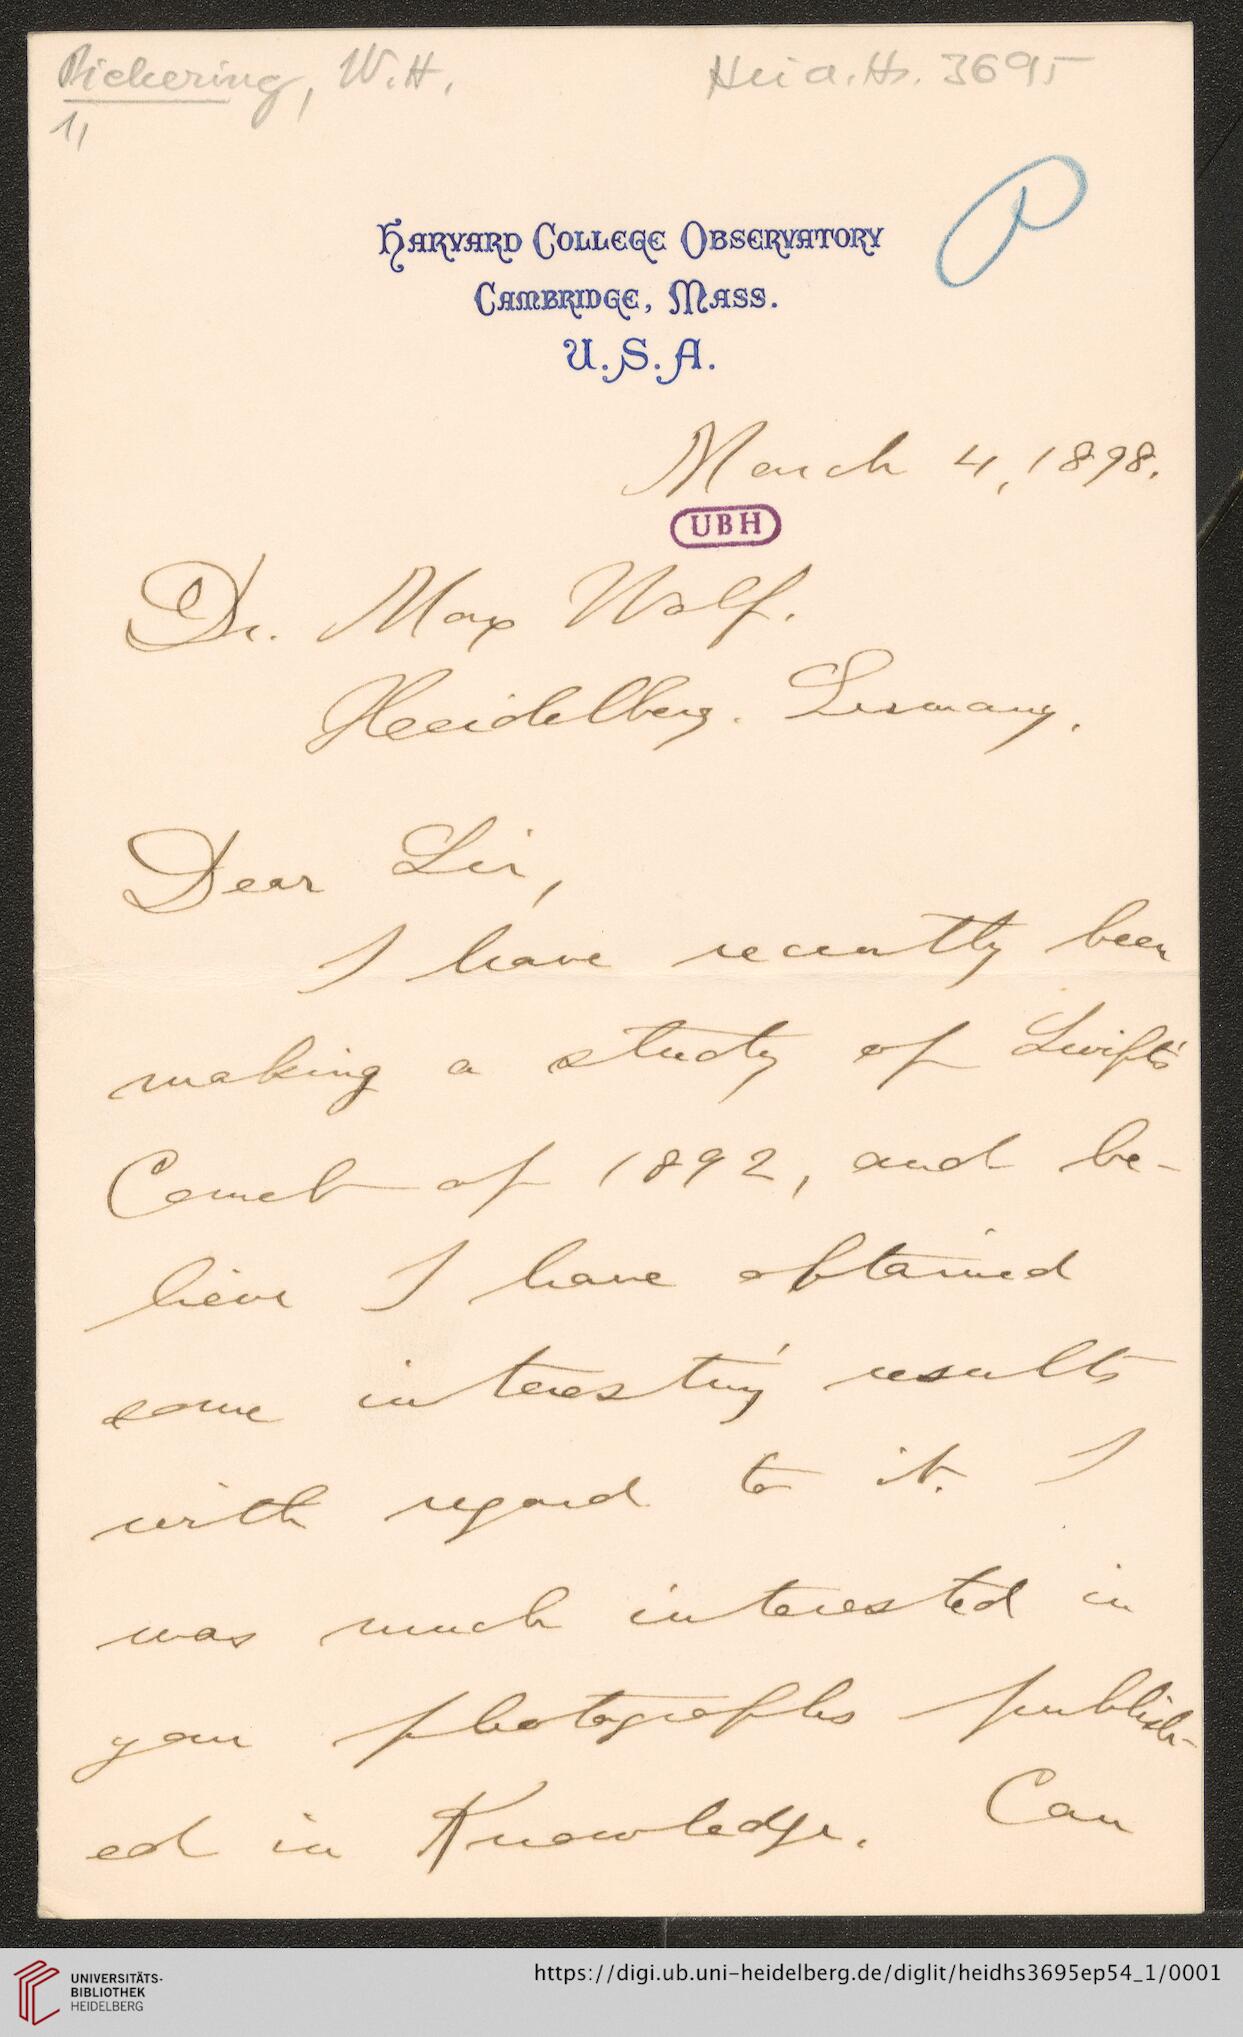 Pickering, W. H.
Heid. Hs. 3695
1,
P
HARVARD COLLEGE OBSERVATORY
CAMBRIDGE, MASS.
U.S.A.
March 4, 1898.
UBH
Dr. Max Wolf.
Heidelberg. Germany.
Dear Sir,
I have recently been
making a study of Swift's
Comet of 1892, and be-
lieve I have obtained
some interesting results
with regard to it. I
was much interested in
your photographs publish-
ed in Knowledge. Can
UNIVERSITÄTS-
BIBLIOTHEK
HEIDELBERG
https://digi.ub.uni-heidelberg.de/diglit/heidhs3695ep54_1/0001